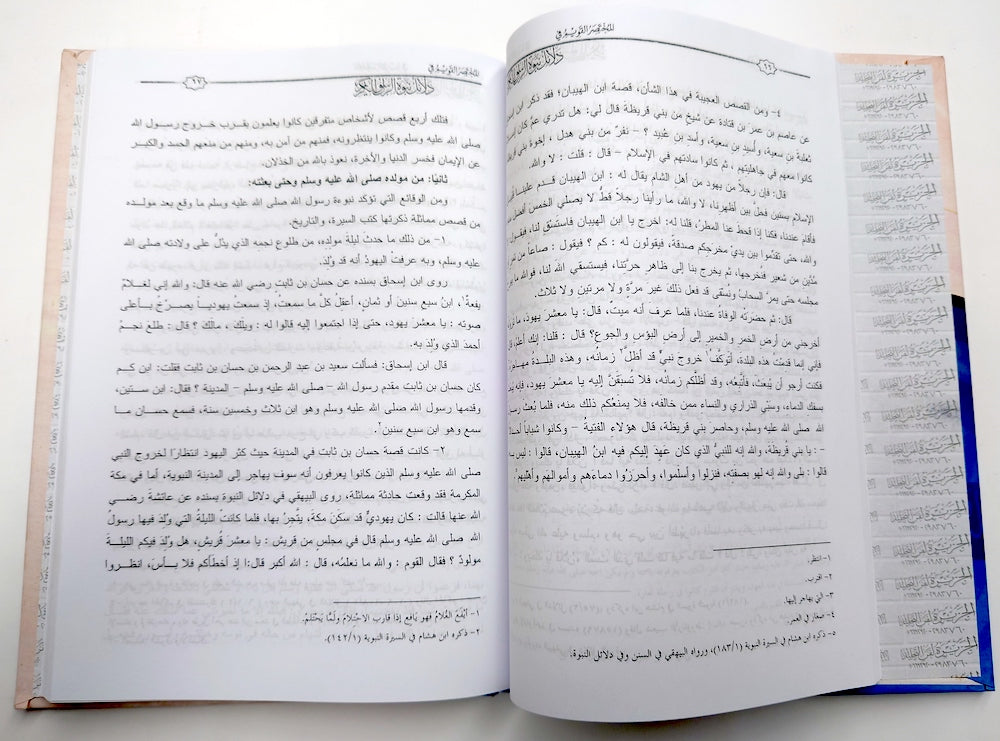 المختصر القويم في
دلائل نبوة الرسول الكريم
٦٦
٤- ومن القصص العجيبة في هذا الشأن، قصة ابن الهيبان؛ فقد ذكر ابن
عن عاصم بن عمرَ بن قتادة عن شيخ من بني قريظة قال لي: هل تدري عمَّ كان
ثعلبة بن سعية، وأسيد بن سعية، وأسد بن عُبيد ؟ - نفرٌ من بني هدل ، إخوة بني
كانوا معهم في جاهليتهم ، ثم كانوا سادتهم في الإسلام – قال : قلت : لا والله.
قال: فإن رجلاً من يهود من أهل الشام يقال له : ابن الهيبان قدم علينا
الإسلام بسنين فحلَّ بين أظهرنا، لا والله، ما رأينا رجلاً قطُّ لا يصلي الخمس أفضل
فأقام عندنا، فكنا إذا قحط عنا المطرُ، قلنا له: اخرج يا ابن الهيبان فاستسقِ لنا، فيقول
والله، حتى تقدِّموا بين يديْ مخرجكم صدقة، فيقولون له : كم ؟ فيقول : صاعاً من
مُدَّين من شعير فنُخرجها، ثم يخرج بنا إلى ظاهر حرَّتنا، فيستسقي الله لنا، فوالله ما
مجلسه حتى يمرَّ السحابُ ونُسقى قد فعل ذلك غير مرَّةٍ ولا مرتين ولا ثلاث.
قال: ثم حضرتْه الوفاةُ عندنا، فلما عرف أنه ميتٌ، قال: يا معشر يهود، ما
أخرجني من أرض الخمر والخمير إلى أرض البؤس والجوع؟ قال : قلنا: إنك أعلم
فإني إنما قدمتُ هذه البلدة، أتوكَّفُ١ خروج نبيٍّ قد أظلَّ٢ زمانُه، وهذه البلدة
فكنت أرجو أن يُبعثَ، فأتَّبعه، وقد أظلَّكم زمانُه، فلا تُسبقُنَّ إليه يا معشر يهود، فإنه
بسفك الدماء، وسبْي الذراري والنساء ممن خالفه، فلا يمنعْكم ذلك منه، فلما بُعث
صلى الله عليه وسلم، وحاصر بني قريظة، قال هؤلاء الفتْيةُ – وكانوا شباباً
- : يا بني قُريظة، والله إنه للنبيُّ الذي كان عَهد إليكم فيه ابنُ الهيبان، قالوا : ليس
قالوا : بلى والله إنه لهو بصفته، فنزلوا وأسلموا، وأحرزُوا دماءَهم وأموالهم وأهليهم
١- انتظر.
٢- اقترب.
٣- التي يهاجر إليها.
٤- صغار في العمر.
٥- ذكره ابن هشام في السيرة النبوية (١٨٣/١)، ورواه البيهقي في السنن وفي دلائل النبوة.
المختصر القويم في
دلائل نبوة الرسول الكريم
٦٧
فتلك أربع قصص لأشخاص متفرقين كانوا يعلمون بقرب خروج رسول الله
صلى الله عليه وسلم وكانوا ينتظرونه، فمنهم من آمن به، ومنهم من منعهم الحسد والكبر
عن الإيمان فخسر الدنيا والآخرة، نعوذ بالله من الخذلان.
ثانيًا: من مولده صلى الله عليه وسلم وحتى بعثته:
ومن الوقائع التي تؤكد نبوءة رسول الله صلى الله عليه وسلم ما وقع بعد مولده
من قصص مماثلة ذكرتها كتب السيرة، والتاريخ.
١- من ذلك ما حدث ليلةَ مولده، من طلوع نجمه الذي يدلُّ على ولادته صلى الله
عليه وسلم، وبه عرفت اليهودُ أنه قد وُلِدَ.
روى ابن إسحاق بسنده عن حسان بن ثابتٍ رضي الله عنه قال: والله إني لغلامٌ
يفعةٌ١، ابنُ سبع سنين أو ثمان، أعقلُ كلَّ ما سمعتُ، إذ سمعتُ يهودياً يصرُخُ بأعلى
صوته : يا معشرَ يهود، حتى إذا اجتمعوا إليه قالوا له : ويلكَ، مالك ؟ قال : طلعَ نجمُ
أحمدَ الذي وُلِدَ به.
قال ابن إسحاق: فسألت سعيد بن عبد الرحمن بن حسان بن ثابت فقلت: ابن كم
كان حسان بن ثابت مقدم رسول الله – صلى الله عليه وسلم – المدينة ؟ فقال: ابن ستين،
وقدمها رسول الله صلى الله عليه وسلم وهو ابن ثلاث وخمسين سنة، فسمع حسان ما
سمع وهو ابن سبع سنين٢.
٢- كانت قصة حسان بن ثابت في المدينة حيث كثر اليهود انتظارًا لخروج النبي
صلى الله عليه وسلم الذين كانوا يعرفون أنه سوف يهاجر إلى المدينة النبوية، أما في مكة
المكرمة فقد وقعت حادثة مماثلة، روى البيهقي في دلائل النبوة بسنده عن عائشة رضي
الله عنها قالت : كان يهوديٌّ قد سكَنَ مكةَ، يتَّجرُ بها، فلما كانت الليلةُ التي وُلِدَ فيها رسولُ
الله صلى الله عليه وسلم قال في مجلسٍ من قريش : يا معشرَ قُريش، هل وُلِدَ فيكم الليلةَ
مولودٌ ؟ فقال القوم : والله ما نعلمُه، قال : الله أكبر قال: إذ أخطأكم فلا بأسَ، انظروا
١- أيْفَعَ الغُلامُ فهو يَافِع إذا قارب الاحْتِلامَ ولَمَّا يَحْتَلِمْ.
٢- ذكره ابن هشام في السيرة النبوية (١٤٢/١).